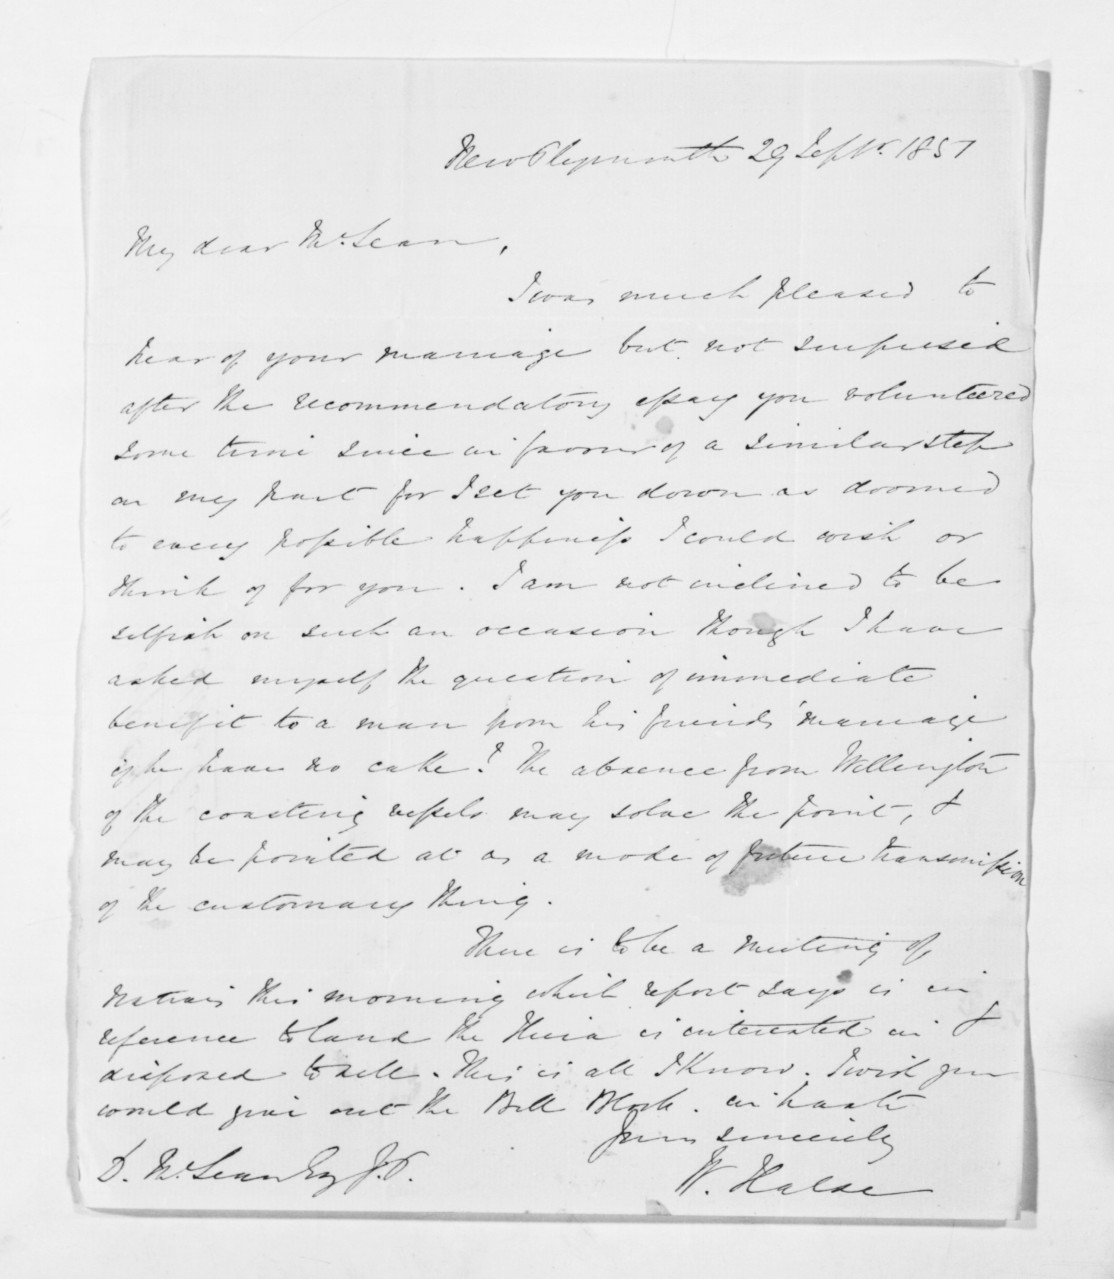 New Plymouth 29 Septr. 1851
My dear McLean,
I was much pleased to
hear of your marriage but not surprised
after the recommendatory essay you volunteered
some time since in favour of a similar step
on my part for I set you down as doomed
to every possible happiness I could wish or
think of for you. I am not inclined to be
selfish on such an occasion though I have
asked myself the question of immediate
benefit to a man from his friends' marriage
if he have no cake? The absence from Wellington
of the coasting vessels may solve the point, &
may be pointed at as a mode of future transmission
of the customary thing.
There is to be a meeting of
natives this morning which report says is in
reference to land the is interested in &
disposed to sell. This is all I know. I wish you
would give out the Bell Block. in haste
Yours sincerely
W. Halse
D. McLean Esq J.P.